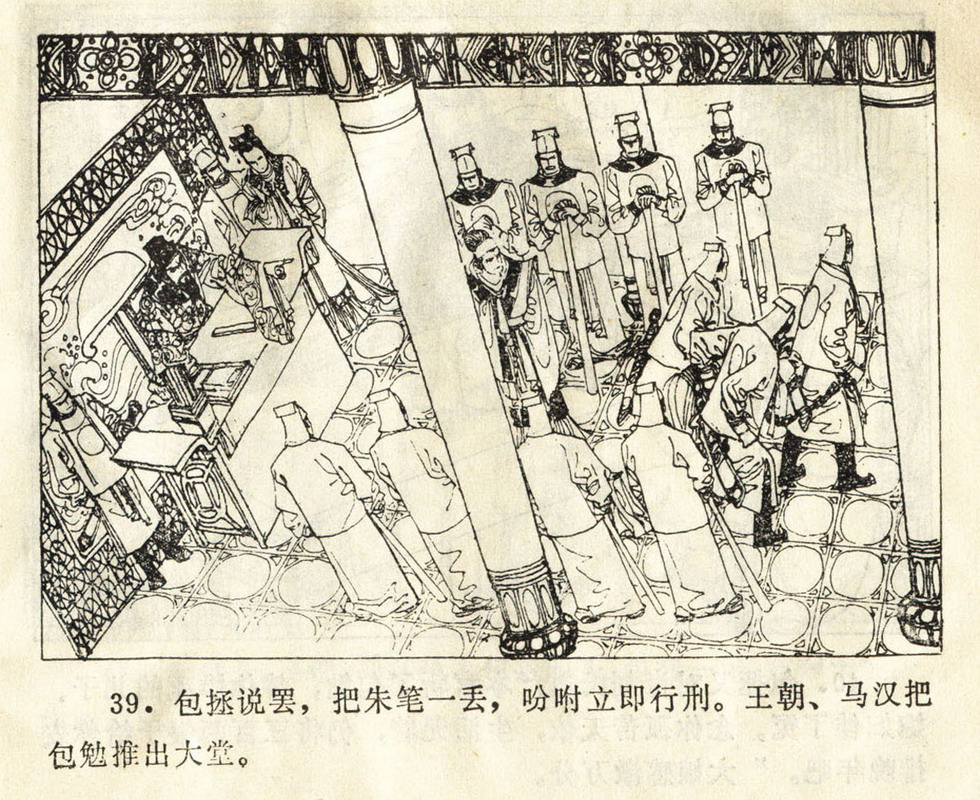 39. 包拯说罢，把朱笔一丢，吩咐立即行刑。王朝、马汉把
包勉推出大堂。